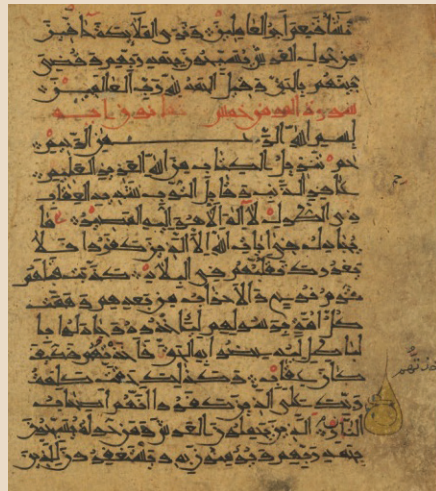 نشا فنعم اجر العاملين وترى الملائكة حافين
من حول العرش يسبحون بحمد ربهم وقضى
بينهم بالحق وقيل الحمد لله رب العالمين
سورة المومن خمس
بسم الله الرحمن الرحيم
حم تنزيل الكتاب من الله العزيز العليم
غافر الذنب وقابل التوب شديد العقاب
ذى الطول لا اله الا هو اليه المصير ما
يجادل فى ايات الله الا الذين كفروا فلا
يغررك تقلبهم فى البلاد كذبت قبلهم
قوم نوح والاحزاب من بعدهم وهمت
كل امة برسولهم لياخذوه وجادلوا با
لباطل ليدحضوا به الحق فاخذتهم فكيف
كان عقاب وكذلك حقت كلمة
ربك على الذين كفروا انهم اصحاب
النار الذين يحملون العرش ومن حوله يسبحون
بحمد ربهم ويومنون به ويستغفرون للذين